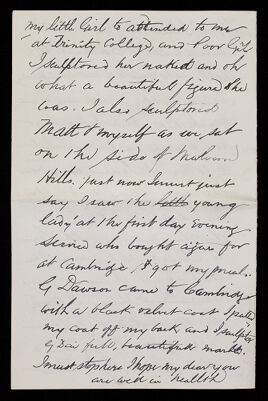 my little Girl to attended to me
at Trinity College, and Poor Girl
I sculptored her naked and oh
what a beautifull figure she
was. I also sculptored
Matt & myself as we sat
on the side of Malvern
Hills. just now I must just
say I saw the young
lady at the first day Evening
Service who bought cigars for
at Cambridge, I got my
G Dawson came to Cambridge
with a black velvet coat I pulled
my coat off my back and I sculptor
G Dawson full, beautifull marble.
I must stop here I hope my dear you
are well in health